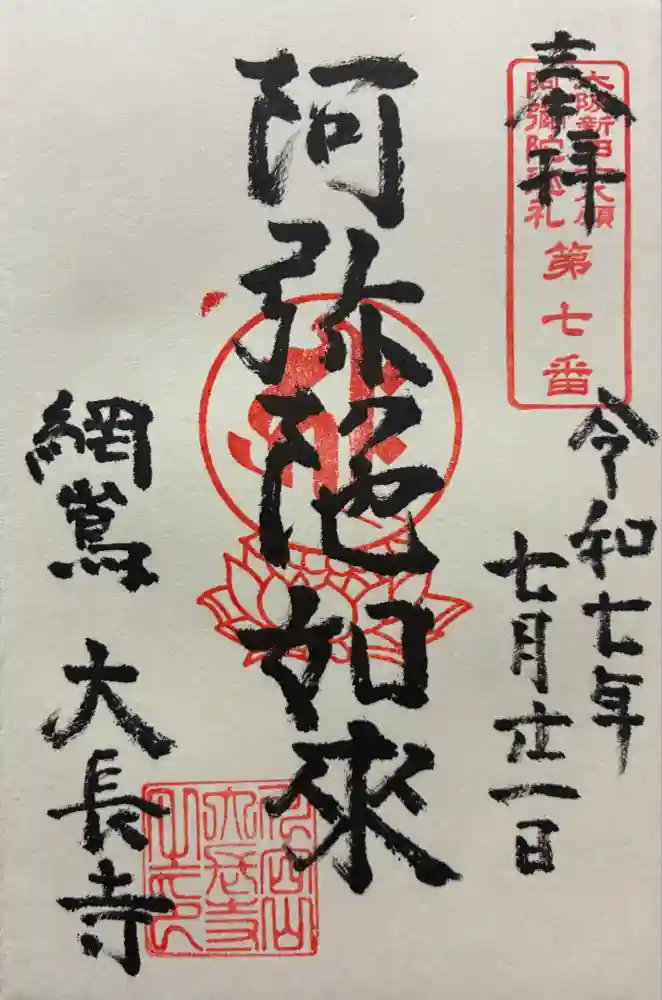 奉拝
大阪新四十八願
阿彌陀巡礼
第七番
令和七年
七月廿一日
阿弥陀如來
網嶌 大長寺